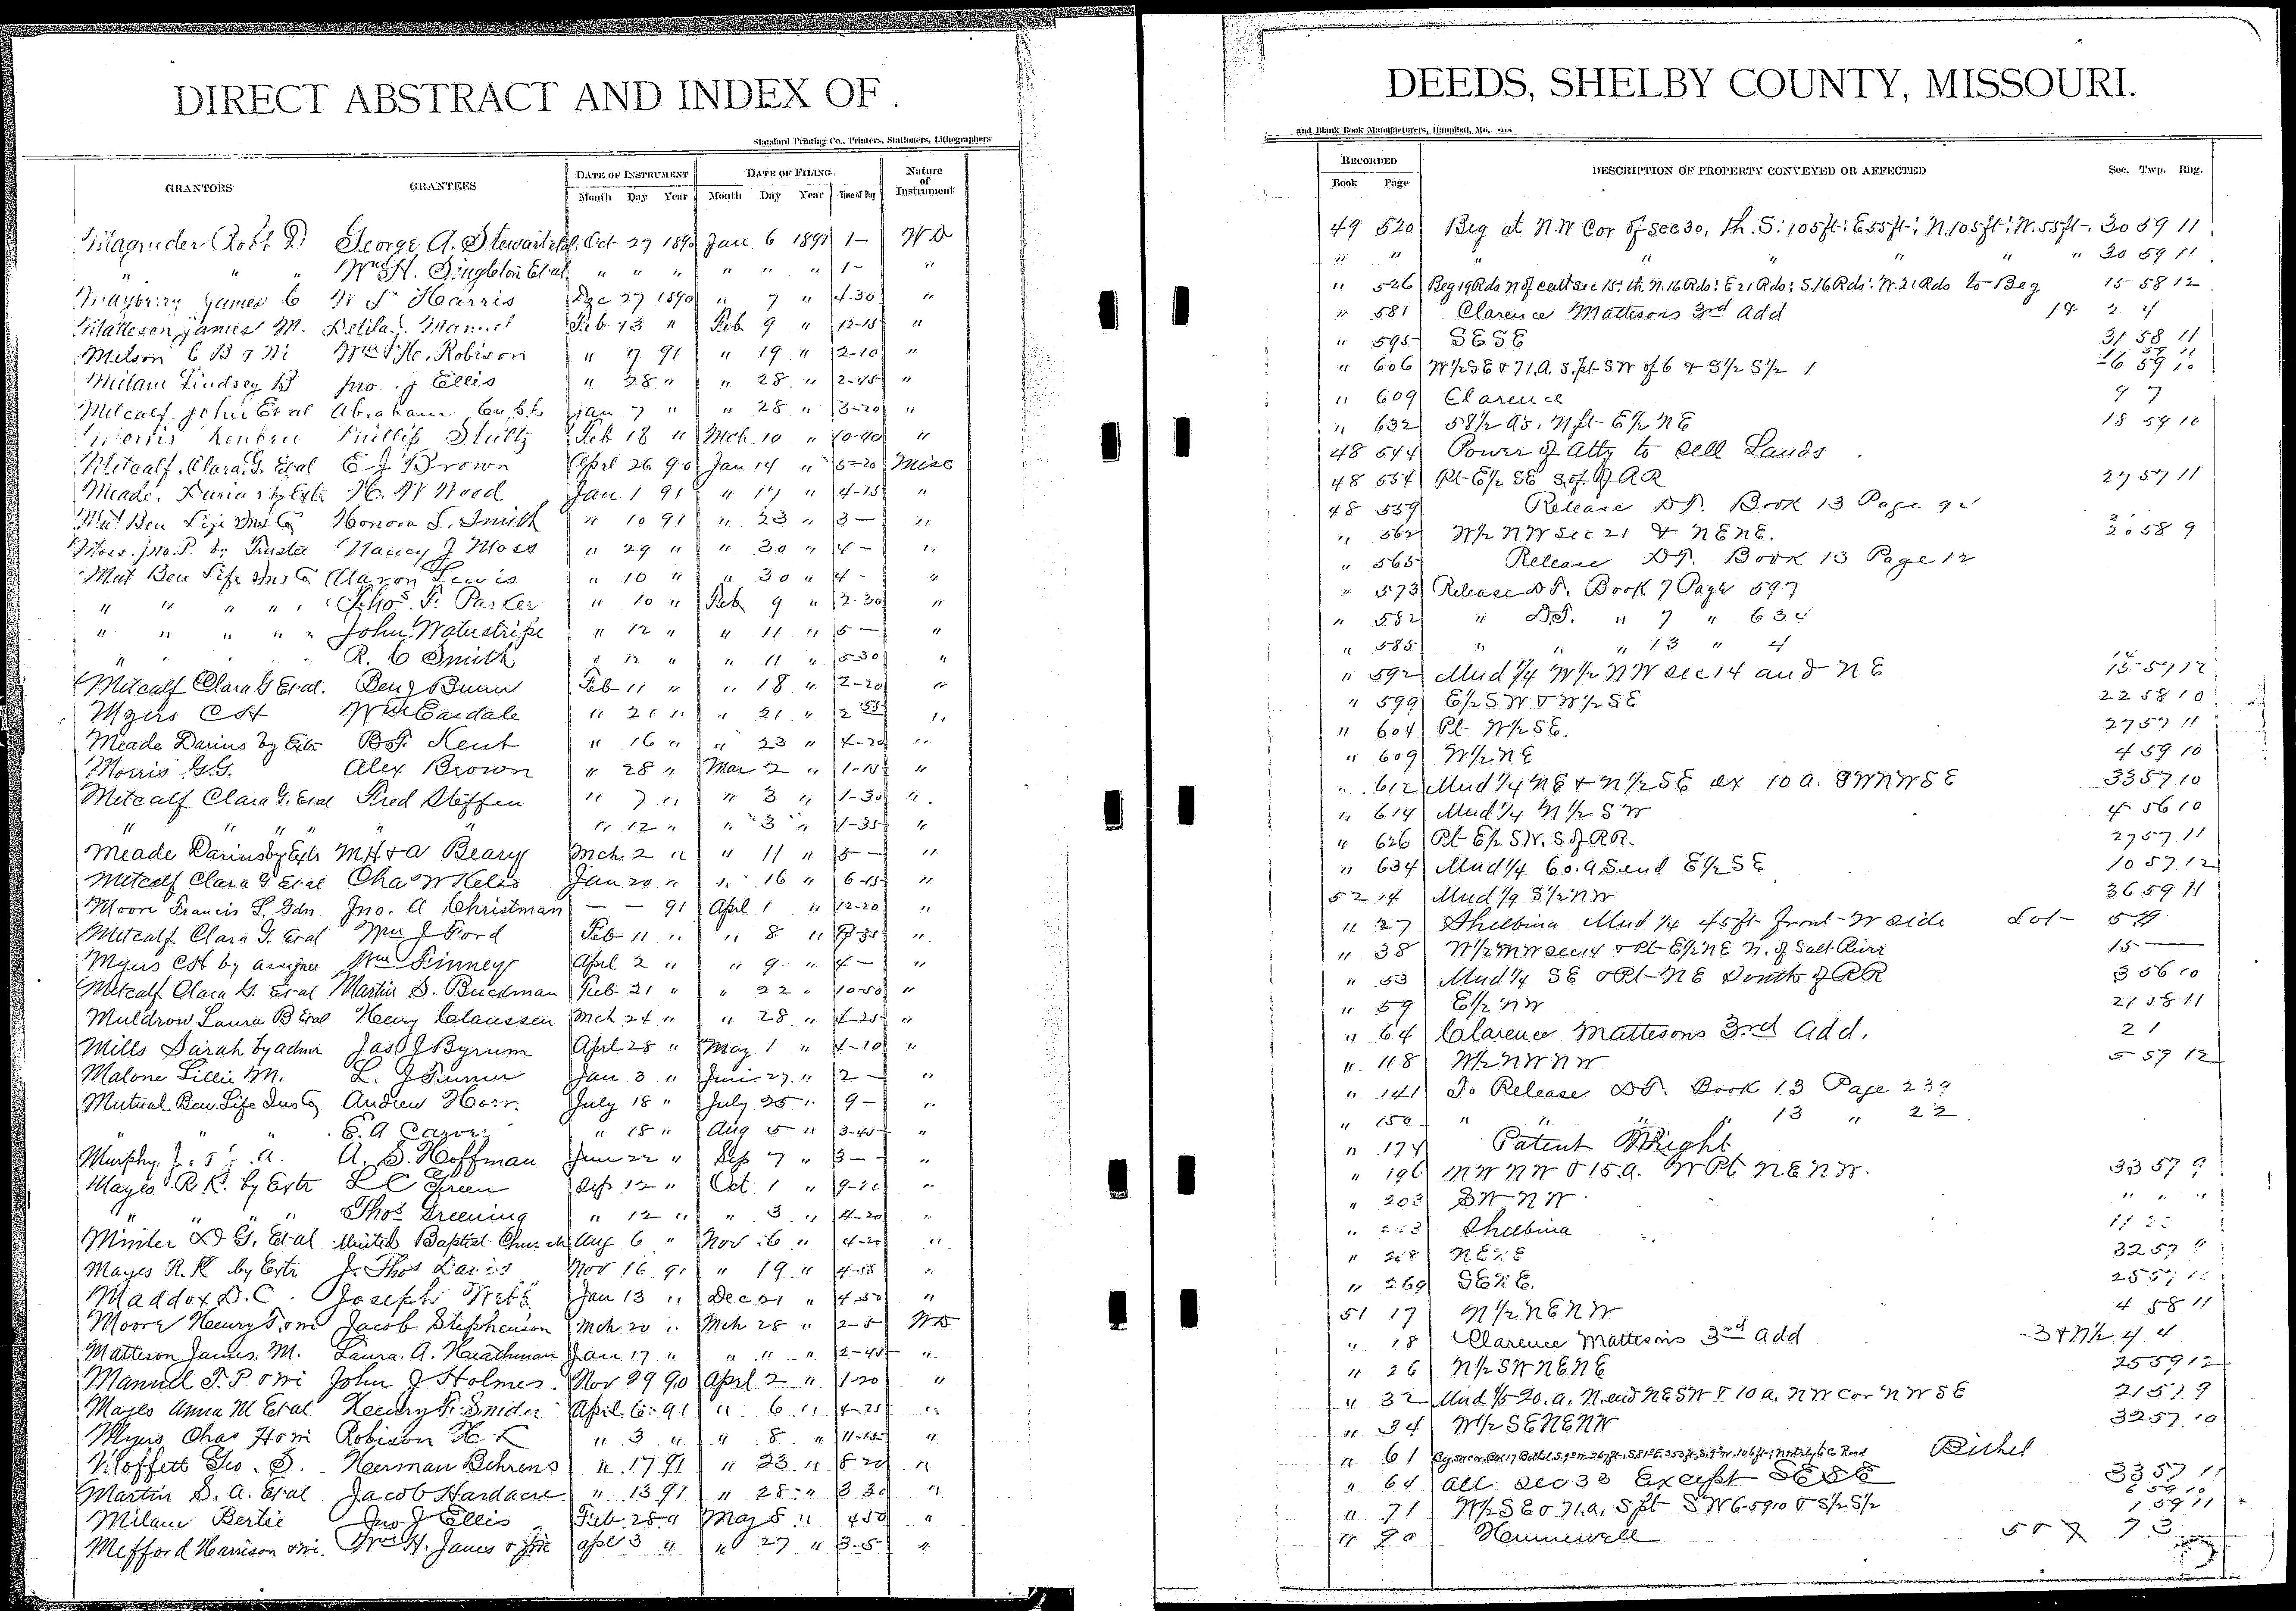 DIRECT ABSTRACT AND INDEX OF
Standard Printing Co., Printers, Stationers, Lithographers
GRANTORS GRANTEES DATE OF INSTRUMENT Month Day Year DATE OF FILING Month Day Year Time of Day Nature of Instrument
Magruder Robt D George A. Stewart et al Oct 27 1890 Jan 6 1891 1- WD
" " " Wm H. Singleton Et al " " " " " " 1- "
Mayberry James C W S Harris Dec 27 1890 " 7 " 4-30 "
Matteson James M. Delila J. Manuel Feb 13 " Feb 9 " 12-15 "
Melson C B & Wi Wm H. Robison " 7 91 " 19 " 2-10 "
Milam Lindsey B Jno. J Ellis " 28 " " 28 " 2-45 "
Metcalf John Et al Abraham Jan 7 " " 28 " 3-20 "
Morris Reuben Phillip Stultz Feb 18 " Mch 10 " 10-40 "
Metcalf Clara G. Et al E J Brown Aprl 26 90 Jan 14 " 5-20 Misc
Meade, Darius by Extr H. W Wood Jan 1 91 " 17 " 4-15 "
Mut Ben Life Ins Co Honora S. Smith " 10 91 " 23 " 3- "
Moss Jno. P. by Trustee Nancy J Moss " 29 " " 30 " 4- "
Mut Ben Life Ins Co Aaron Lewis " 10 " " 30 " 4- "
" " " " Thos. F. Parker " 10 " Feb 9 " 2-30 "
" " " " John Waterstripe " 12 " " 11 " 5- "
" R. C Smith " 12 " " 11 " 5-30 "
Metcalf Clara G Et al. Benj Bunn Feb 11 " " 18 " 2-20 "
Myers C H Wm Easdale " 21 " " 21 " 2 55 "
Meade Darius by Extr B. F. Kent " 16 " " 23 " 4-20 "
Morris G.G. Alex Brown " 28 " Mar 2 " 1-15 "
Metcalf Clara G. Et al Fred Steffen " 7 " " 3 " 1-30 "
" " " " " " 12 " " 3 " 1-35 "
Meade Darius by Extr M H & A Beary Mch 2 " " 11 " 5- "
Metcalf Clara G Et al Chas W Kelso Jan 20 " " 16 " 6-15 "
Moore Francis L. Gdn Jno. A Christman - - 91 April 1 " 12-20 "
Metcalf Clara G. Et al Wm J Ford Feb 11 " " 8 " "
Myers C H by assignee Wm Finney April 2 " " 9 " 4- "
Metcalf Clara G. Et al Martin S. Buckman Feb 21 " " 22 " 10-50 "
Muldrow Laura B Et al Henry Claussen Mch 24 " " 28 " 4-25 "
Mills Sarah by admr Jas J Byrum April 28 " May 1 " 4-10 "
Malone Lillie M. L. J Turner Jan 3 " June 27 " 2- "
Mutual Ben Life Ins Co Andrew Horn July 18 " July 25 " 9- "
" " " E. A Carver " 18 " Aug 5 " 3-45 "
Murphy A. A. S. Hoffman June 22 " Sep 7 " 3-- "
Mayes R K. by Extr L C Green Sep 12 " Oct 1 " "
" " " " Thos Greening " 12 " " 3 " 4-20 "
Minter L G. Et al United Baptist Church Aug 6 " Nov 16 " 4-20 "
Mayes R. K by Extr J. Thos Davis Nov 16 91 " 19 " "
Maddox D. C. Joseph Webb Jan 13 " Dec 21 " 4 50 "
Moore Henry T. & wi Jacob Stephenson Mch 20 " Mch 28 " 2-5 WD
Matteson James. M. Laura. A. Heathman Jan 17 " " " " 2-45 "
Manuel T. P & wi John J Holmes. Nov 29 90 April 2 " 1-20 "
Mayes Anna M Et al Henry F. Snider April 6 91 " 6 " 4-25 "
Myers Chas H & wi Robison H. L " 3 " " 8 " 11-15 "
Moffett Geo. S. Herman Behrens " 17 91 " 23 " 5-20 "
Martin S. A. Et al Jacob Hardacre " 13 91 " 28 " 3 30 "
Milam Bertie Jno J Ellis Feb 28 " May 5 " 4 50 "
Mefford Harrison & wi. Wm H. James Aprl 3 " " 27 " 3-5 "
DEEDS, SHELBY COUNTY, MISSOURI.
and Blank Book Manufacturers, Hannibal, Mo.
RECORDED Book Page DESCRIPTION OF PROPERTY CONVEYED OR AFFECTED Sec. Twp. Rng.
49 520 Beg at N.W Cor of Sec 30, th. S. 105 ft: E 55 ft: N. 105 ft: W. 55 ft- 30 59 11
" " " " " " " 30 59 11
" 526 Beg 19 Rds N of cent sec 15: th. N. 16 Rds: E 21 Rds: S. 16 Rds: W. 21 Rds to Beg 15 58 12
" 581 Clarence Mattesons 3rd Add 14 2 4
" 595 SESE 31 58 11
" 606 W1/2 SE & 71. A. S. pt SW of 6 & S1/2 S1/2 1 6 59 10
" 609 Clarence 9 7
" 632 58 1/2 a's. N pt- E1/2 NE 18 59 10
48 544 Power of Atty to sell Lands
48 554 Pt- E1/2 SE S. of RR 27 57 11
48 559 Release D.T. Book 13 Page
" 562 W1/2 NW sec 21 & NENE. 20 58 9
" 565 Release D.T. Book 13 Page 12
" 573 Release D.T. Book 7 Page 597
" 582 " D.T. " 7 "
" 585 " " 13 " 4
" 592 Und 1/4 W1/2 NW sec 14 and NE 15 57 12
" 599 E1/2 SW & W1/2 SE 22 58 10
" 604 Pt W1/2 SE. 27 57 11
" 609 W1/2 NE 4 59 10
" 612 Und 1/4 NE & N1/2 SE ex 10 a. SWNWSE 33 57 10
" 614 Und 1/4 N1/2 SW 4 56 10
" 626 Pt- E1/2 SW. S of RR. 27 57 11
" 634 Und 1/4 60. a S end E1/2 SE 10 57 12
52 14 Und 1/9 S1/2 NW 36 59 11
" 27 Shelbina Und 1/4 45 ft- front- W side Lot-
" 38 W1/2 NW sec 14 & Pt- E1/2 NE N. of Salt River 15
" 53 Und 1/4 SE & Pt- NE South of RR 3 56 10
" 59 E1/2 NW 21 58 11
" 64 Clarence Mattesons 3rd Add. 2 1
" 118 W1/2 NWNW 5 59 12
" 141 To Release D.T. Book 13 Page 239
" 150 " " " 13 " 22
" 174 Patent Right
" 196 NWNW & 15. a. W Pt NENW. 33 57 9
" 203 SWNW " " "
" Shelbina
" NENE 32 57 9
" 269 SENE. 25 57
51 17 N1/2 NENW 4 58 11
" 18 Clarence Mattesons 3rd Add 3 & N1/2 4 4
" 26 N1/2 SWNENE 25 59 12
" 32 Und 1/5 20. a. N. end NESW & 10 a. NW cor NWSE 21 57 9
" 34 W1/2 SENENW 32 57 10
" 61 Bethel
" 64 All Sec 33 Except SESE 33 57 11
" 71 W1/2 SE & 71. a. S pt SW 6-59 10 & S1/2 S1/2 1 59 11
" 90 Hunnewell